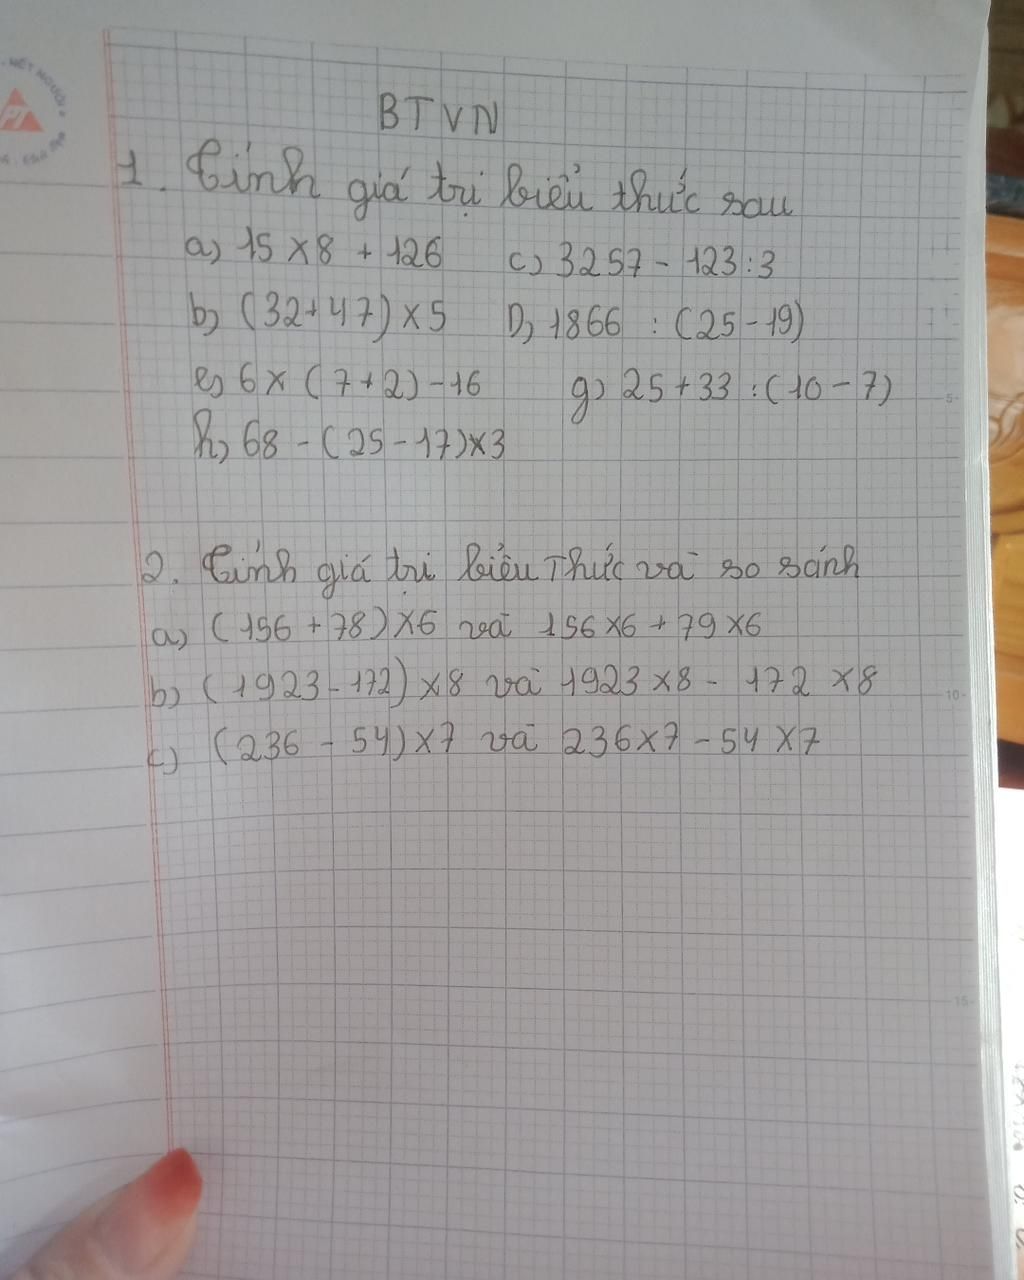 BTVN
1. Tính giá trị biểu thức sau
a) 15 x 8 + 126 c) 3257 - 123 : 3
b) (32 + 47) x 5 D) 1866 : (25 - 19)
e) 6 x (7 + 2) - 16 g) 25 + 33 : (10 - 7)
h) 68 - (25 - 17) x 3
2. Tính giá trị biểu Thức và so sánh
a) (156 + 78) x 6 và 156 x 6 + 79 x 6
b) (1923 - 172) x 8 và 1923 x 8 - 172 x 8
c) (236 - 54) x 7 và 236 x 7 - 54 x 7
5
10
15
PT